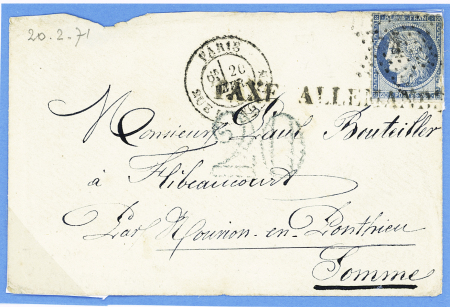 20.2.71
PARIS
TAXE ALLEMANDE
Monsieur Paul Bouteiller
à Flibeaucourt
Par Nouvion-en-Ponthieu
Somme